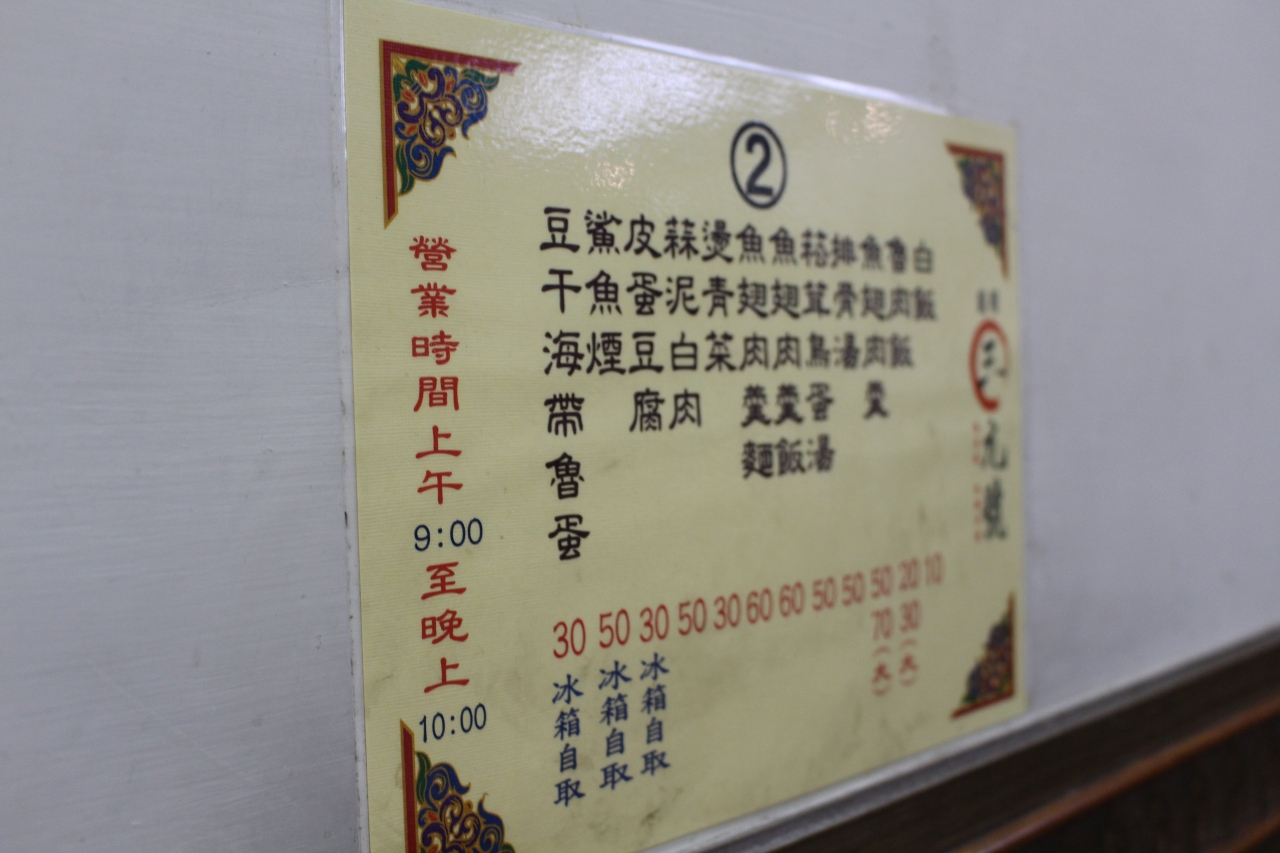 ②
白飯 10
魯肉飯 20 30(大)
魚翅肉羹 50 70(大)
排骨湯 50
菇茸鳥蛋湯 50
魚翅肉羹飯 60
魚翅肉羹麵 60
燙青菜 30
蒜泥白肉 50
皮蛋豆腐 30 冰箱自取
鯊魚煙 50 冰箱自取
豆干海帶魯蛋 30 冰箱自取
營業時間上午9:00至晚上10:00